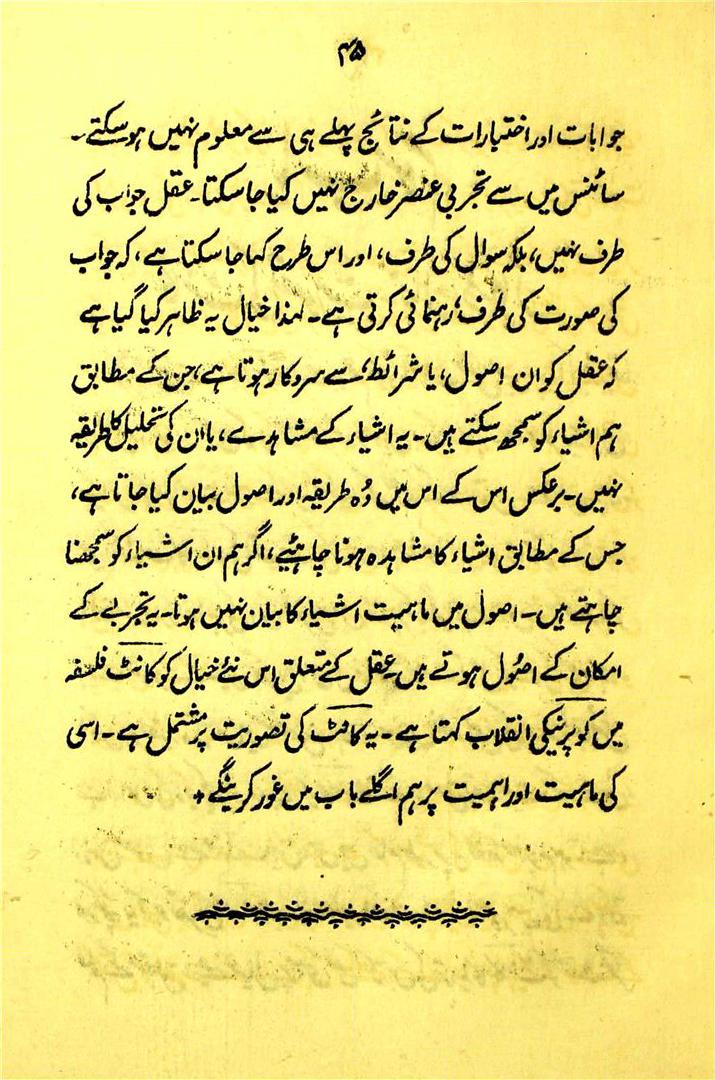 ۴۵
جوابات اور اختبارات کے نتائج پہلے ہی سے معلوم نہیں ہو سکتے۔
سائنس میں سے تجربی عنصر خارج نہیں کیا جا سکتا۔ عقل جواب کی
طرف نہیں، بلکہ سوال کی طرف، اور اس طرح کہا جا سکتا ہے، کہ جواب
کی صورت کی طرف، رہنمائی کرتی ہے۔ لہذا خیال یہ ظاہر کیا گیا ہے
کہ عقل کو ان اصول، یا شرائط، سے سروکار ہوتا ہے، جن کے مطابق
ہم اشیاء کو سمجھ سکتے ہیں۔ یہ اشیاء کے مشاہدے، یا ان کی تحلیل کا طریقہ
نہیں۔ برعکس اس کے اس میں وُہ طریقہ اور اصول بیان کیا جاتا ہے،
جس کے مطابق اشیاء کا مشاہدہ ہونا چاہئیے، اگر ہم ان اشیاء کو سمجھنا
چاہتے ہیں۔ اصول میں ماہیت اشیاء کا بیان نہیں ہوتا۔ یہ تجربے کے
امکان کے اصُول ہوتے ہیں۔ عقل کے متعلق اس نئے خیال کو کانٹ فلسفہ
میں کوپرنیکی انقلاب کہتا ہے۔ یہ کانٹ کی تصوریت پر مشتمل ہے۔ اسی
کی ماہیت اور اہمیت پر ہم اگلے باب میں غور کرینگے +